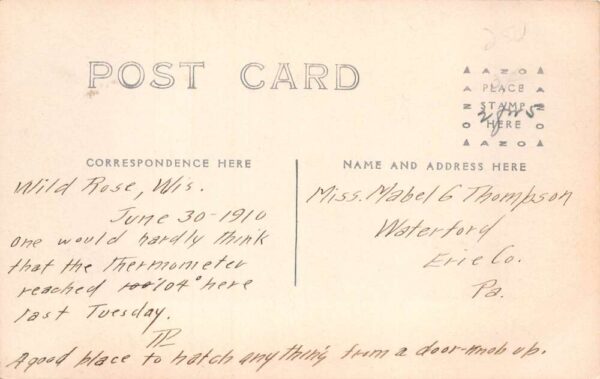 POST CARD
AZO
PLACE
STAMP
HERE
AZO
CORRESPONDENCE HERE
Wild Rose, Wis.
June 30-1910
One would hardly think
that the Thermometer
reached 104° here
last Tuesday.
A good place to hatch anything from a door-knob up.
NAME AND ADDRESS HERE
Miss. Mabel G Thompson
Waterford
Erie Co.
Pa.